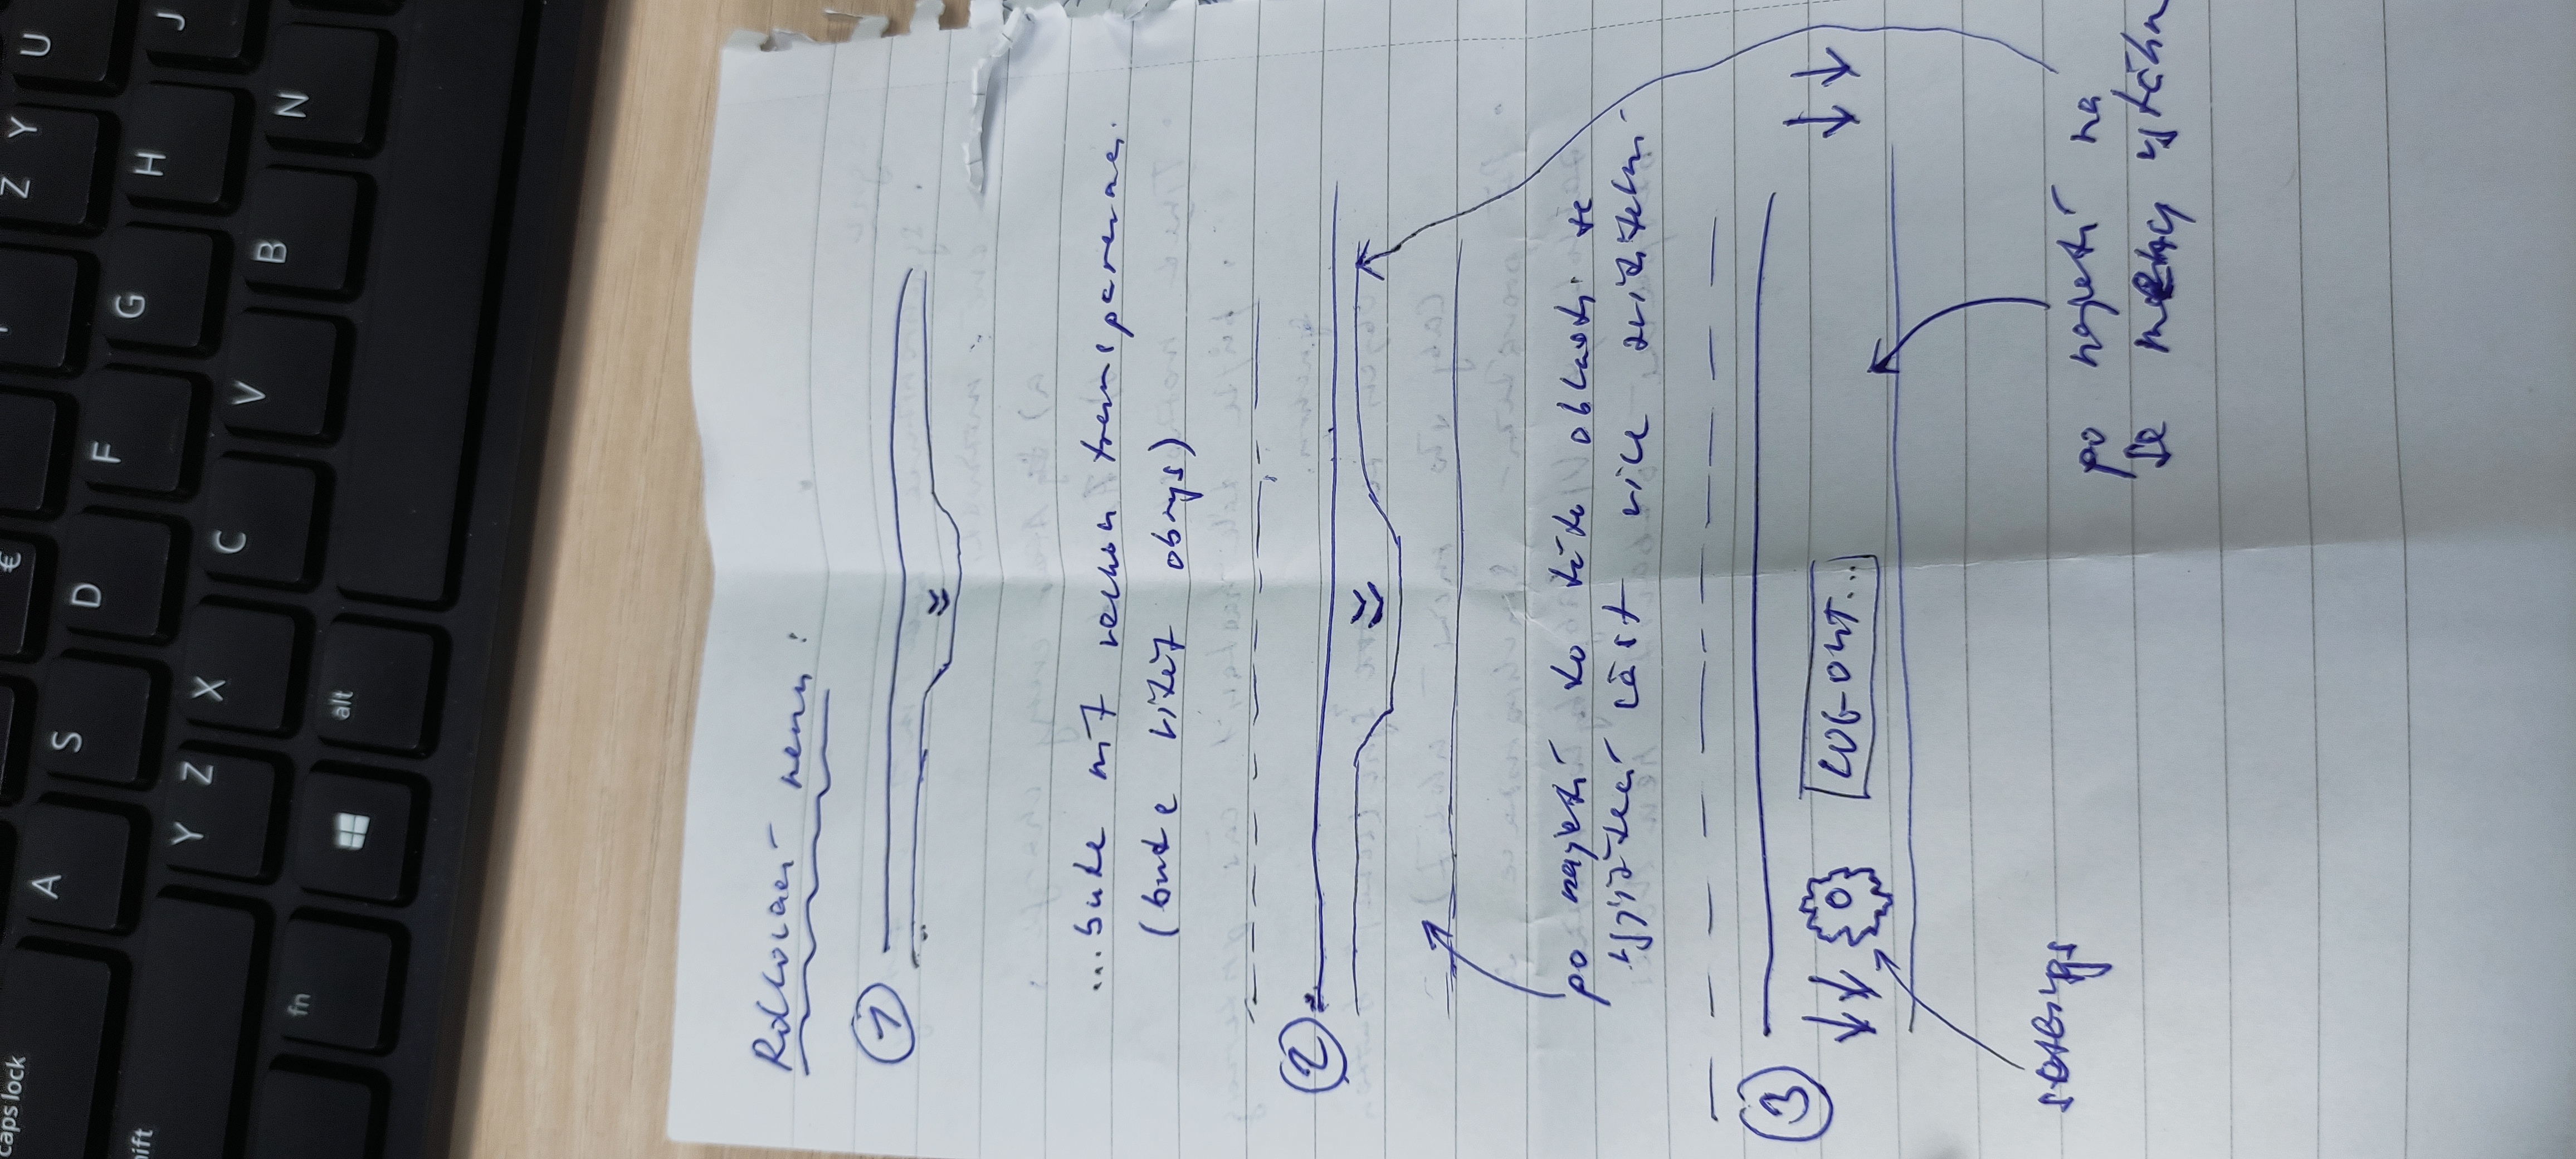 caps lock
A
S
D
F
G
H
J
€
Z Y
U
ift
Y Z
X
C
V
B
N
fn
alt
Rolovací menu:
1
...bude mít velkou transparenci
(bude vidět obrys)
2
po najetí do této oblasti se
vyjížděcí část více zviditelní
3
LOG-OUT...
settings
po najetí na
se menu vytáhn